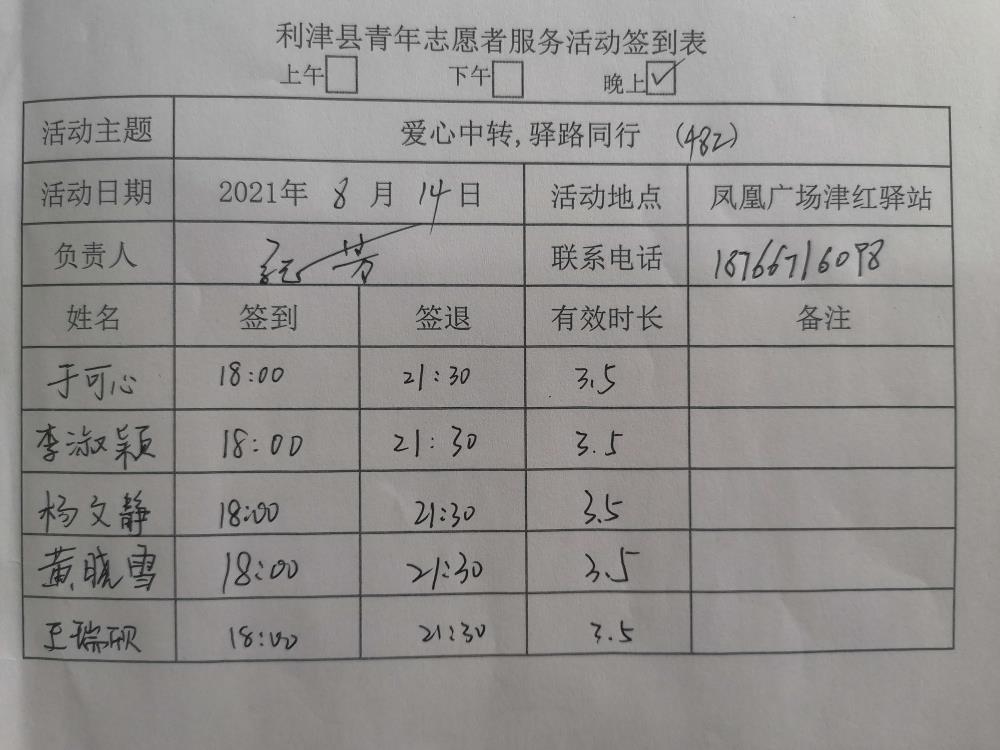 利津县青年志愿者服务活动签到表
上午 下午 晚上 ✓
活动主题 爱心中转,驿路同行 (482)
活动日期 2021年 8 月 14 日 活动地点 凤凰广场津红驿站
负责人 芳 联系电话 18766716098
姓名 签到 签退 有效时长 备注
于可心 18:00 21:30 3.5
李淑颖 18:00 21:30 3.5
杨文静 18:00 21:30 3.5
黄晓雪 18:00 21:30 3.5
王瑞硕 18:00 21:30 3.5